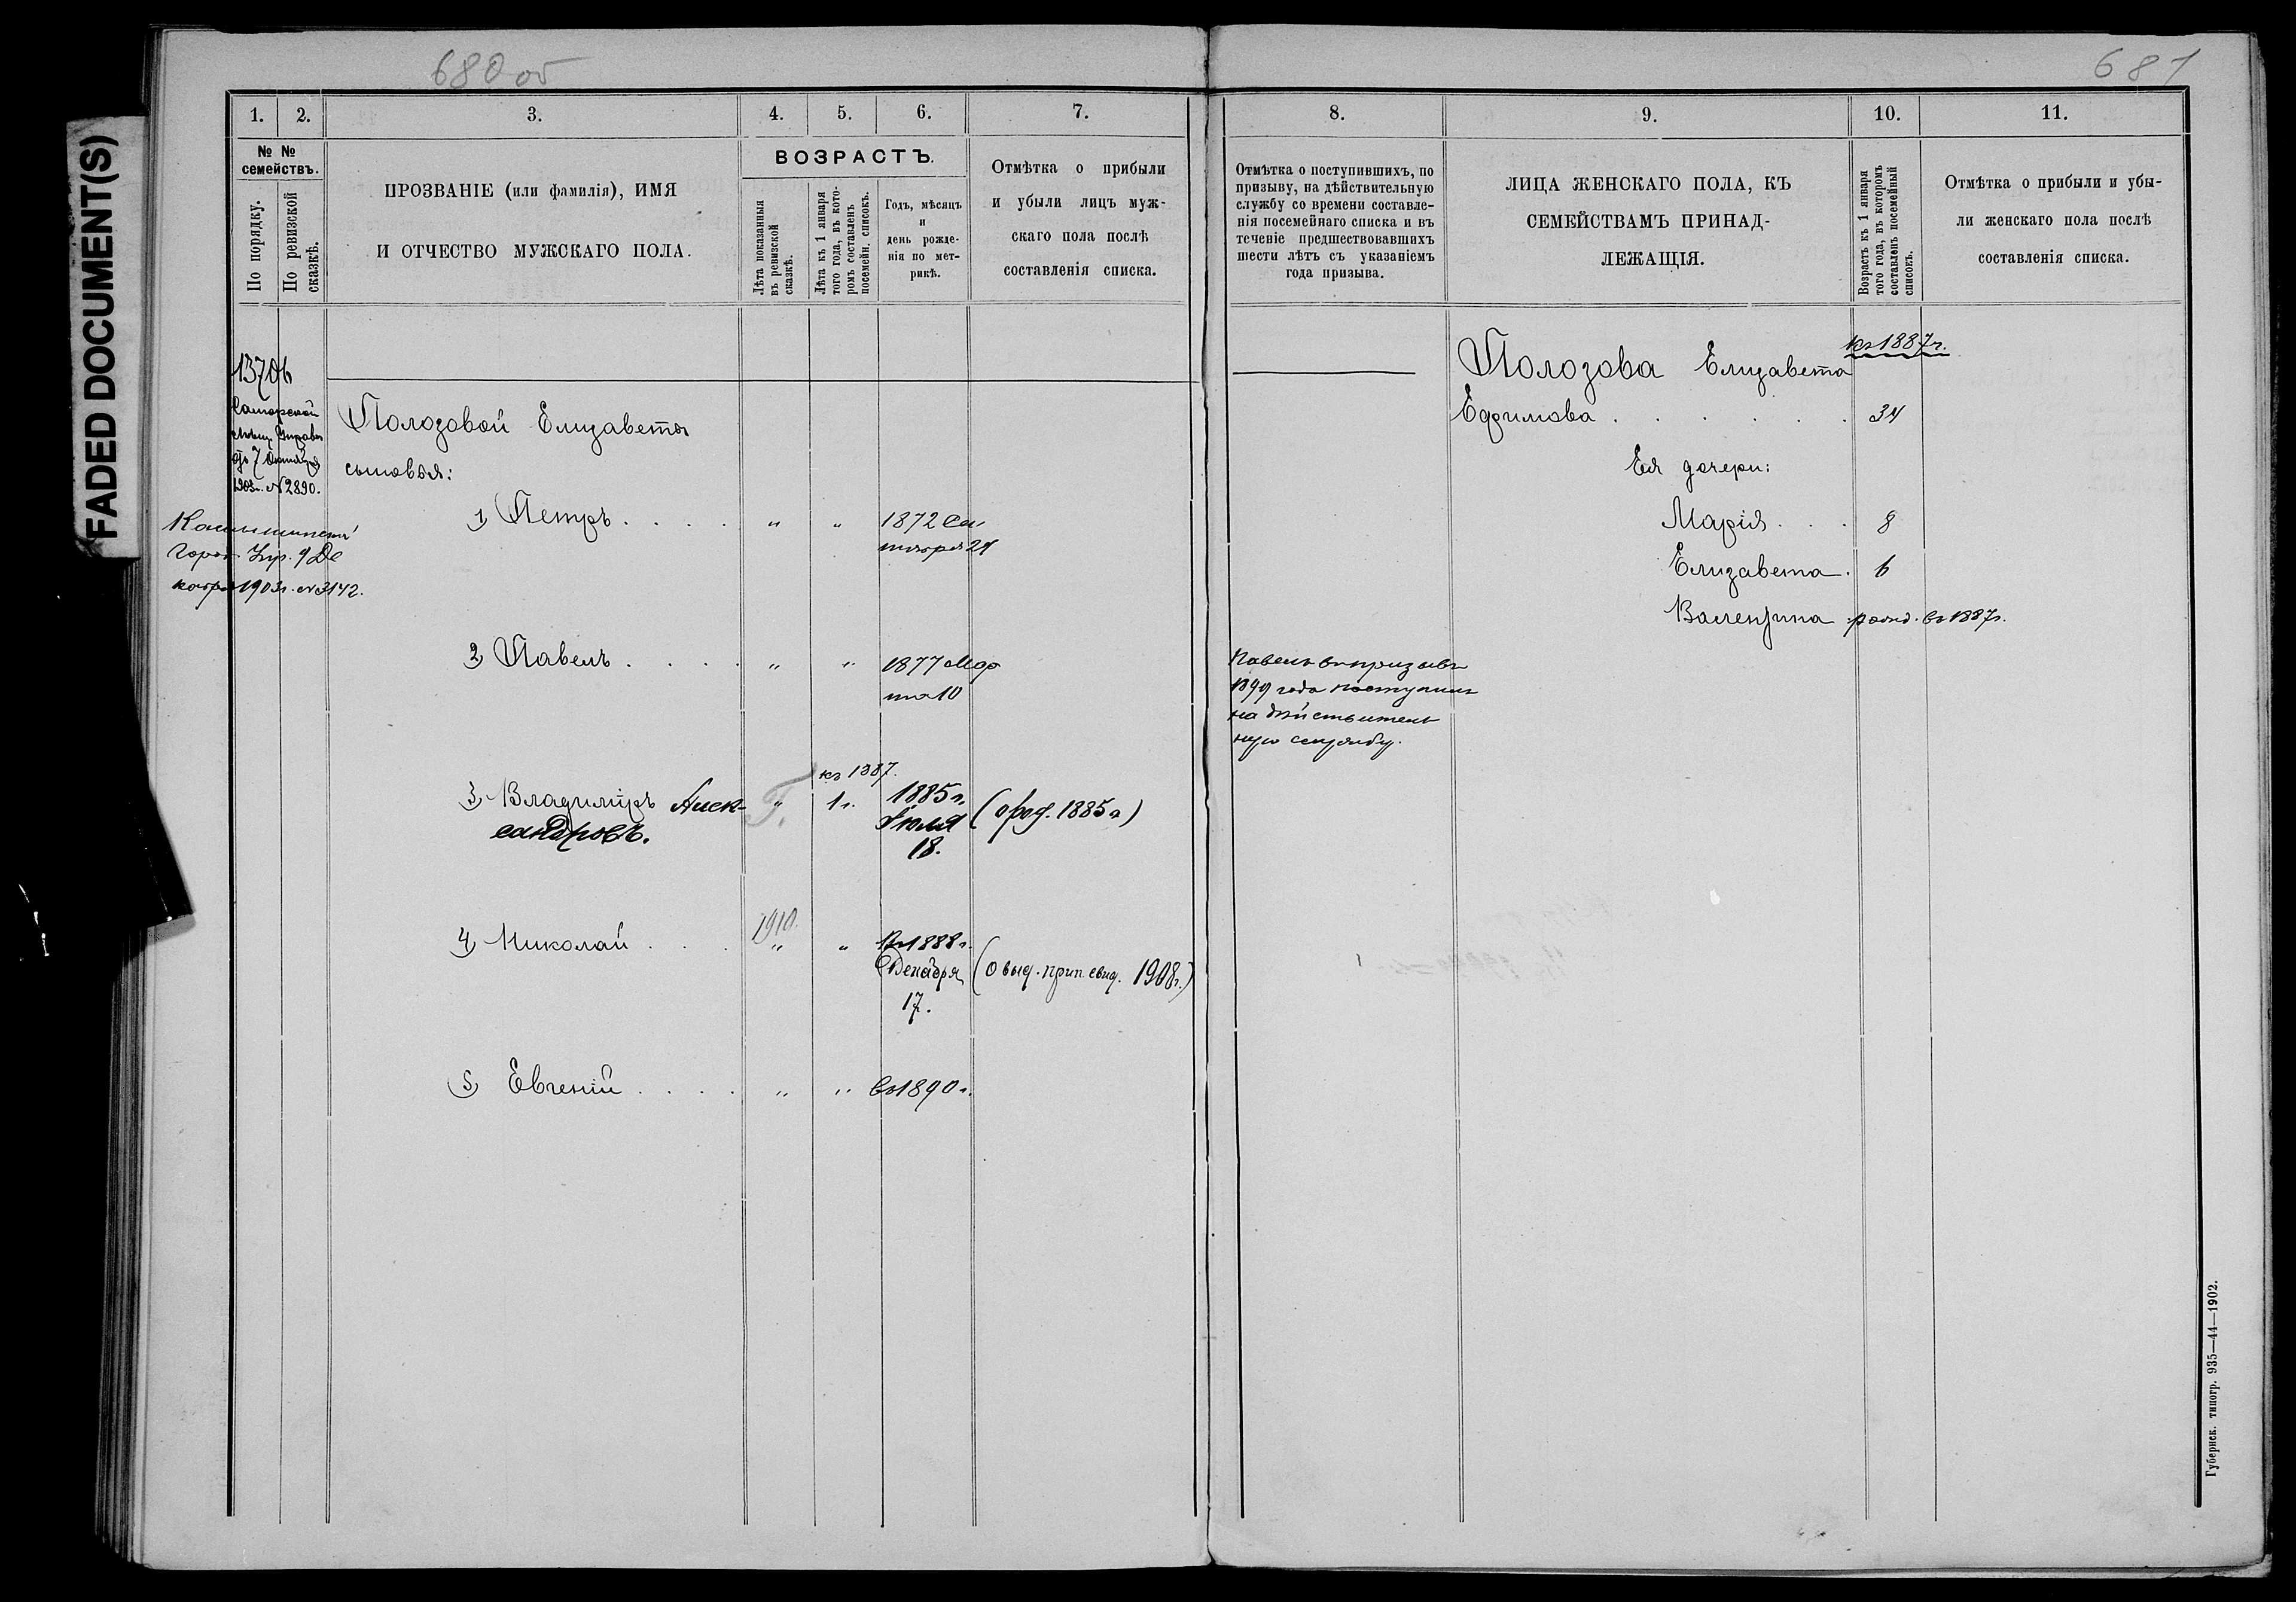 FADED DOCUMENT(S)
680 об
681
1. 2. 3. 4. 5. 6. 7.
№ №
семействъ.
По порядку.
По ревизской
сказкѣ.
ПРОЗВАНІЕ (или фамилія), ИМЯ
И ОТЧЕСТВО МУЖСКАГО ПОЛА.
ВОЗРАСТЪ.
Лѣта показанныя
въ ревизской
сказкѣ.
Лѣта къ 1 января
того года, въ кото-
ромъ составленъ
посемейн. списокъ.
Годъ, мѣсяцъ
и
день рожде-
нія по мет-
рикѣ.
Отмѣтка о прибыли
и убыли лицъ муж-
скаго пола послѣ
составленія списка.
1370б
Самарской
мѣщ. Управы
7
1903г. №2890.
Город. Упр. 9 Де
кабря 1903г. №3142.
Полозовой Елизаветы
сыновья:
1) Петръ . . . . " " 1872 Сен
тября 21
2) Павелъ . . . . " " 1877 Мар
та 10
къ 1887.
3) Владиміръ Алек- Г. " 1 г. 1885 г. (о род. 1885 г)
сандровъ. Іюля
18.
1910.
4) Николай . . . " " Въ 1888 г.
Декабря (о выд. прип. свид. 1908г.)
17.
5) Евгеній . . . . " " въ 1890 г.
8. 9. 10. 11.
Отмѣтка о поступившихъ, по
призыву, на дѣйствительную
службу со времени составле-
нія посемейнаго списка и въ
теченіе предшествовавшихъ
шести лѣтъ съ указаніемъ
года призыва.
ЛИЦА ЖЕНСКАГО ПОЛА, КЪ
СЕМЕЙСТВАМЪ ПРИНАД-
ЛЕЖАЩІЯ.
Возрастъ къ 1 января
того года, въ которомъ
составленъ посемейный
списокъ.
Отмѣтка о прибыли и убы-
ли женскаго пола послѣ
составленія списка.
къ 1887 г.
Полозова Елизавета
Ефимова . . . . . . 34
Ея дочери:
Марія . . . 8
Елизавета . 6
Валентина рожд. въ 1887г.
Павелъ въ призывъ
1899 года поступилъ
на дѣйствитель
ную службу.
Губернск. типогр. 935—44—1902.